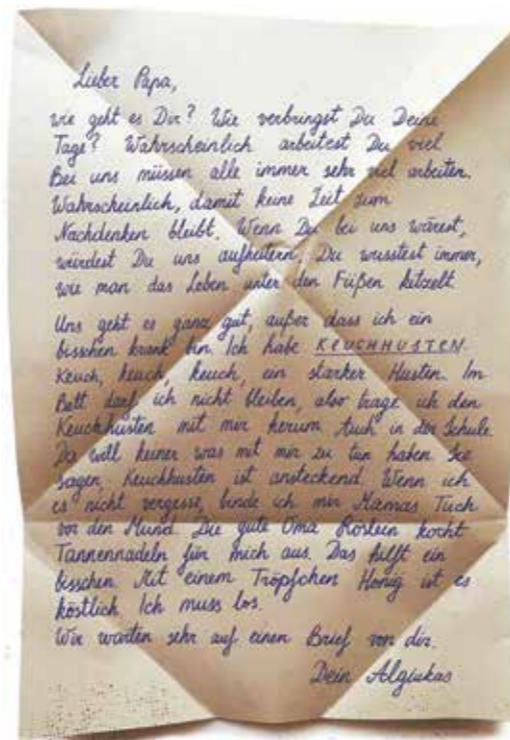 Lieber Papa,
wie geht es Dir? Wie verbringst Du Deine
Tage? Wahrscheinlich arbeitest Du viel
Bei uns müssen alle immer sehr viel arbeiten.
Wahrscheinlich, damit keine Zeit zum
Nachdenken bleibt. Wenn Du bei uns wärest,
würdest Du uns aufheitern. Du wusstest immer,
wie man das Leben unter den Füßen kitzelt
Uns geht es ganz gut, außer dass ich ein
bisschen krank bin. Ich habe KEUCHHUSTEN
Keuch, keuch, keuch, ein starker Husten. Im
Bett darf ich nicht bleiben, also trage ich den
Keuchhusten mit mir herum Auch in der Schule
Da will keiner was mit mir zu tun haben Sie
sagen, Keuchhusten ist ansteckend. Wenn ich
es nicht vergesse, binde ich mir Mamas Tuch
vor den Mund. Die gute Oma Röslein kocht
Tannennadeln für mich aus. Das hilft ein
bisschen. Mit einem Tröpfchen Honig ist es
köstlich Ich muss los.
Wir warten sehr auf einen Brief von dir.
Dein Algiukas